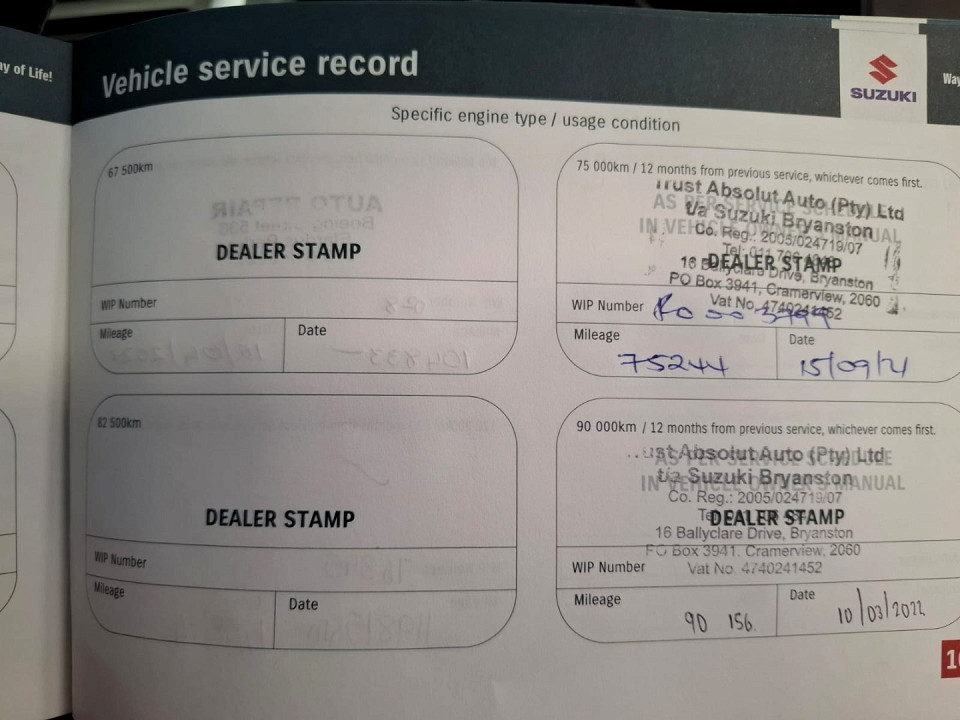 ay of Life!
Vehicle service record
SUZUKI
Way
Specific engine type / usage condition
67 500km
DEALER STAMP
WIP Number
Mileage
Date
75 000km / 12 months from previous service, whichever comes first.
Trust Absolut Auto (Pty) Ltd
AS PER SERVICE SCHEDULE
t/a Suzuki Bryanston
IN VEHICLE OWNER'S MANUAL
Co. Reg.: 2005/024719/07
Tel: 011
DEALER STAMP
16 Ballyclare Drive, Bryanston
PO Box 3941, Cramerview, 2060
Vat No. 4740241452
WIP Number
Mileage 75244
Date 15/09/21
82 500km
DEALER STAMP
WIP Number
Mileage
Date
90 000km / 12 months from previous service, whichever comes first.
ust Absolut Auto (Pty) Ltd
AS PER SERVICE SCHEDULE
t/a Suzuki Bryanston
IN VEHICLE OWNER'S MANUAL
Co. Reg.: 2005/024719/07
DEALER STAMP
16 Ballyclare Drive, Bryanston
PO Box 3941, Cramerview, 2060
WIP Number
Vat No. 4740241452
Mileage 90 156
Date 10/03/2022